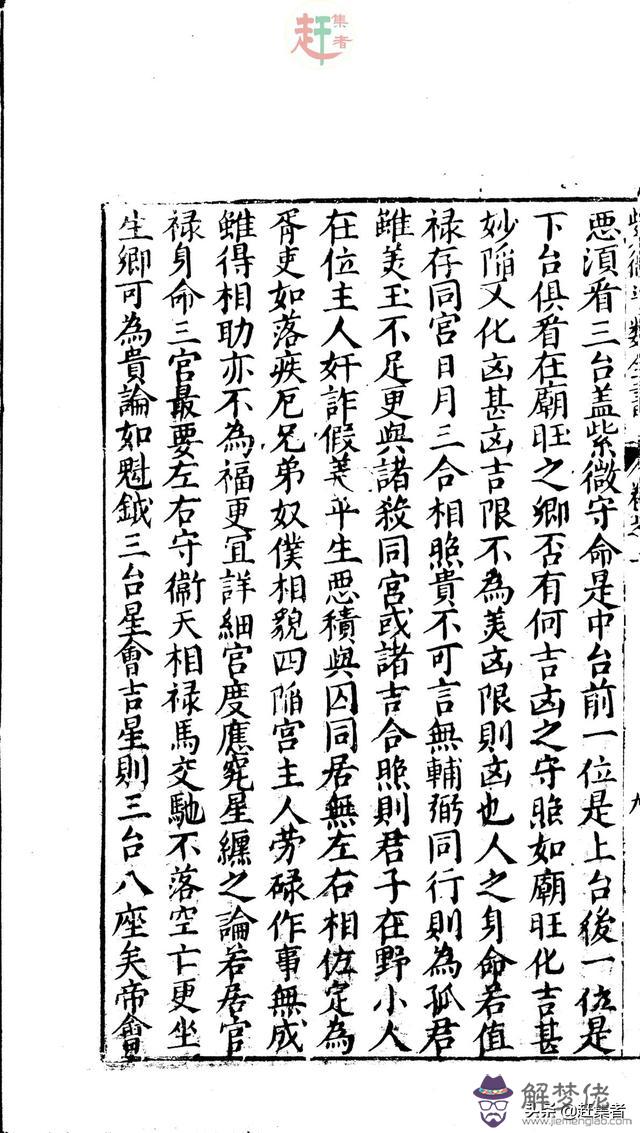 赶集者
紫微斗數全書 卷之一
九
惡須看三台盖紫微守命是中台前一位是上台後一位是
下台俱看在廟旺之鄉否有何吉凶之守照如廟旺化吉甚
妙陷又化凶甚凶吉限不為美凶限則凶也人之身命若值
禄存同宮日月三合相照貴不可言無輔弼同行則為孤君
雖美玉不足更與諸殺同宮或諸吉合照則君子在野小人
在位主人奸詐假善平生惡積與囚同居無左右相佐定為
胥吏如落疾厄兄弟奴僕相貌四陷宮主人劳碌作事無成
雖得相助亦不為福更宜詳細宫度應究星纏之論若居官
禄身命三宫最要左右守衞天相禄馬交馳不落空亡更坐
生鄉可為貴論如魁鉞三台星會吉星則三台八座矣帝會
解梦佬
头条@赶集者
www.jiemenglao.com